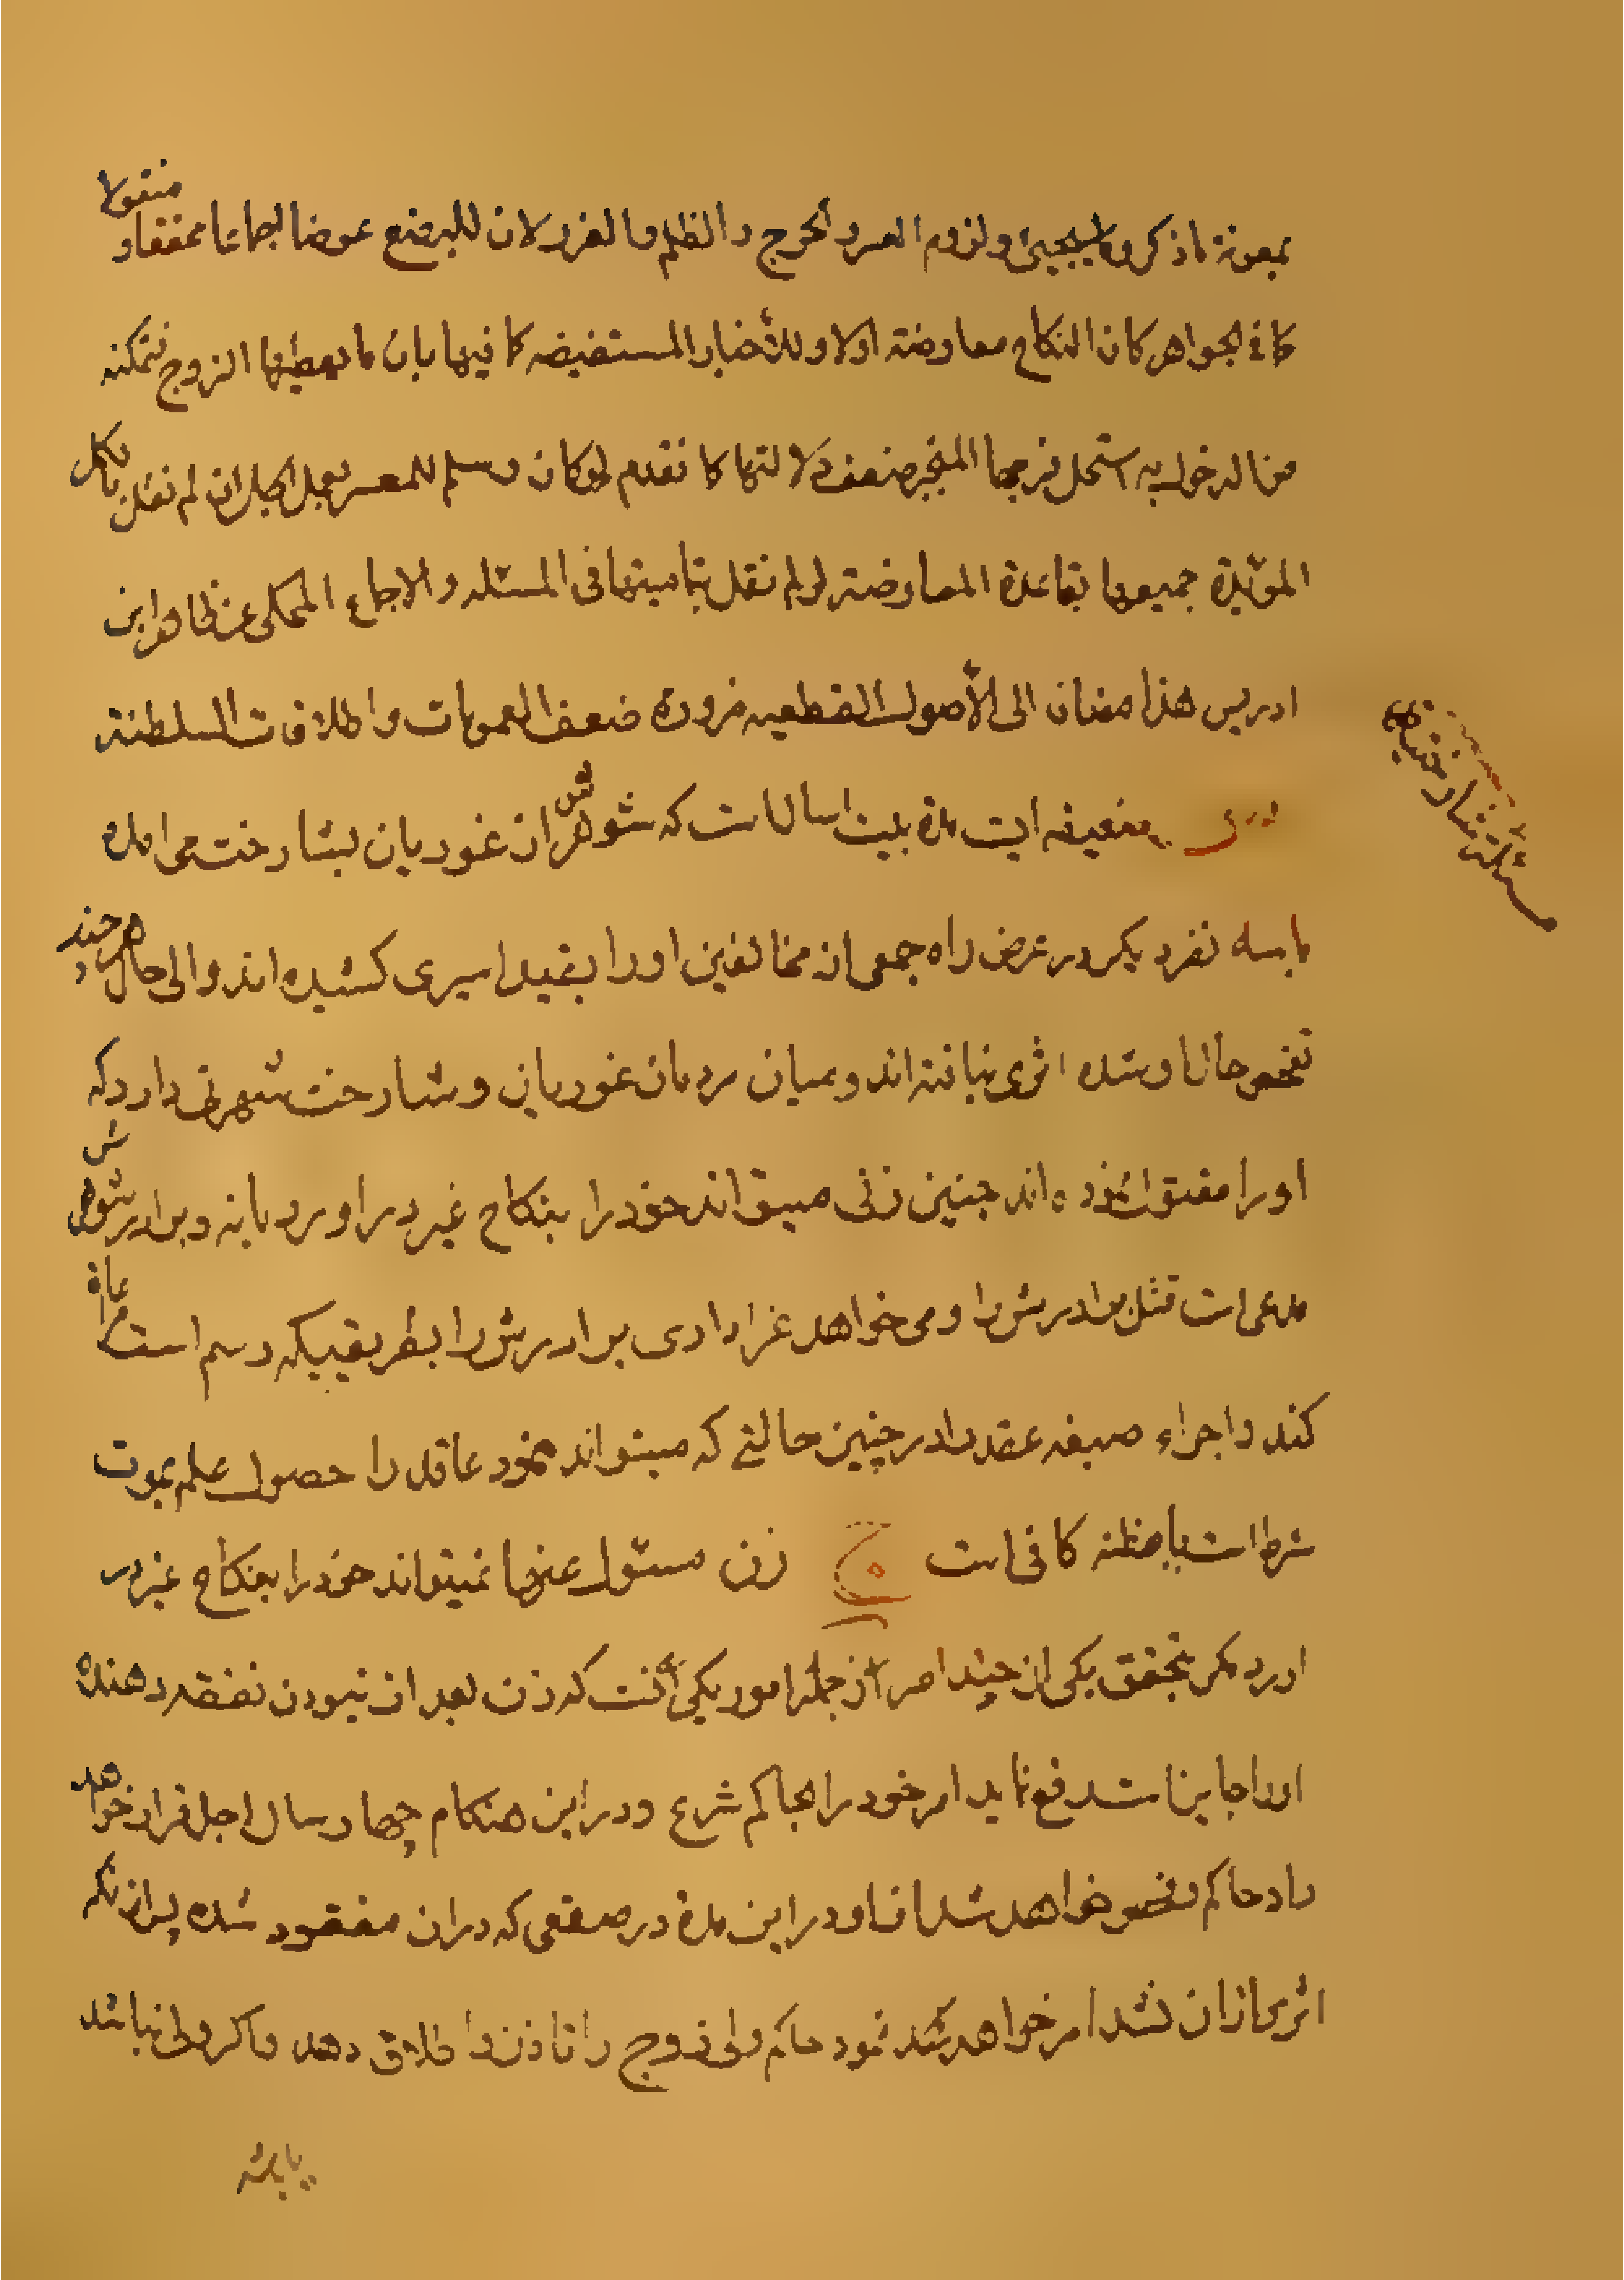 بمعونة ماذكر وما سيجيئ ولزوم العسر والحرج والظلم والغرر لان للبضع عوضا اجماعا محققا و منقولا
كما فى الجواهر كان النكاح معاوضة اولا وللأخبار المستفيضه كما فيها بان ما يعطيها الزوج فتمكنه
من الدخول به استحل فرجها المنجبر ضعف دلالتها كما تقدم لو كان ان لم نقل بالكل
المؤيّدة جميعها بقاعدة المعاوضة لو لم نقل بتماميتها فى المسئله والاجماع المحكى عن ظاهر ابن
ادريس هذا مضاف الى الأصول القطعيه ضرورة ضعف العمومات واطلاقات السلطنة
ضعيفه ايست مدة بيست سال است كه شوهرش از غوريان بشارخت مى امده
با سه نفر ديكر در عرض راه جمعى از مخالفين او را بقيد اسيرى كشيده اند والى حال هر چند
تفحص حال او شده اثرى نيافته اند و ميان مردمان غوريان و شارخت شهرتى دارد كه
او را مقتول نموده اند چنين زنى ميتواند خود را بنكاح غير در اورد يا نه و برادر شوهرش
مدعى است قتل برادرش را و مى خواهد عزادارى برادرش را بطريقيكه رسم است
كند و اجراء صيغه عقد را در چنين حالتى كه ميتواند نمود عاقد را حصول علم بموت
شرط است يا مظنه كافى است ج زن مسئول عنها نميتواند خود را بنكاح غير در
اورد مكر بتحقق يكى از چند امر از جمله امور يكى آنست كه زن بعد از نبودن نفقه دهنده
او را جايز است رفع نمايد امر خود را بحاكم شرع و در اين هنكام چهار سال اجل قرار خواهد
داد حاكم و تفحص خواهد شد از او در اين مدة در صقعى كه در ان مفقود شده پس از انكه
اثرى از ان نشد امر خواهد نمود حاكم ولى زوج را تا ان زن را طلاق دهد و اكر ولى نباشد